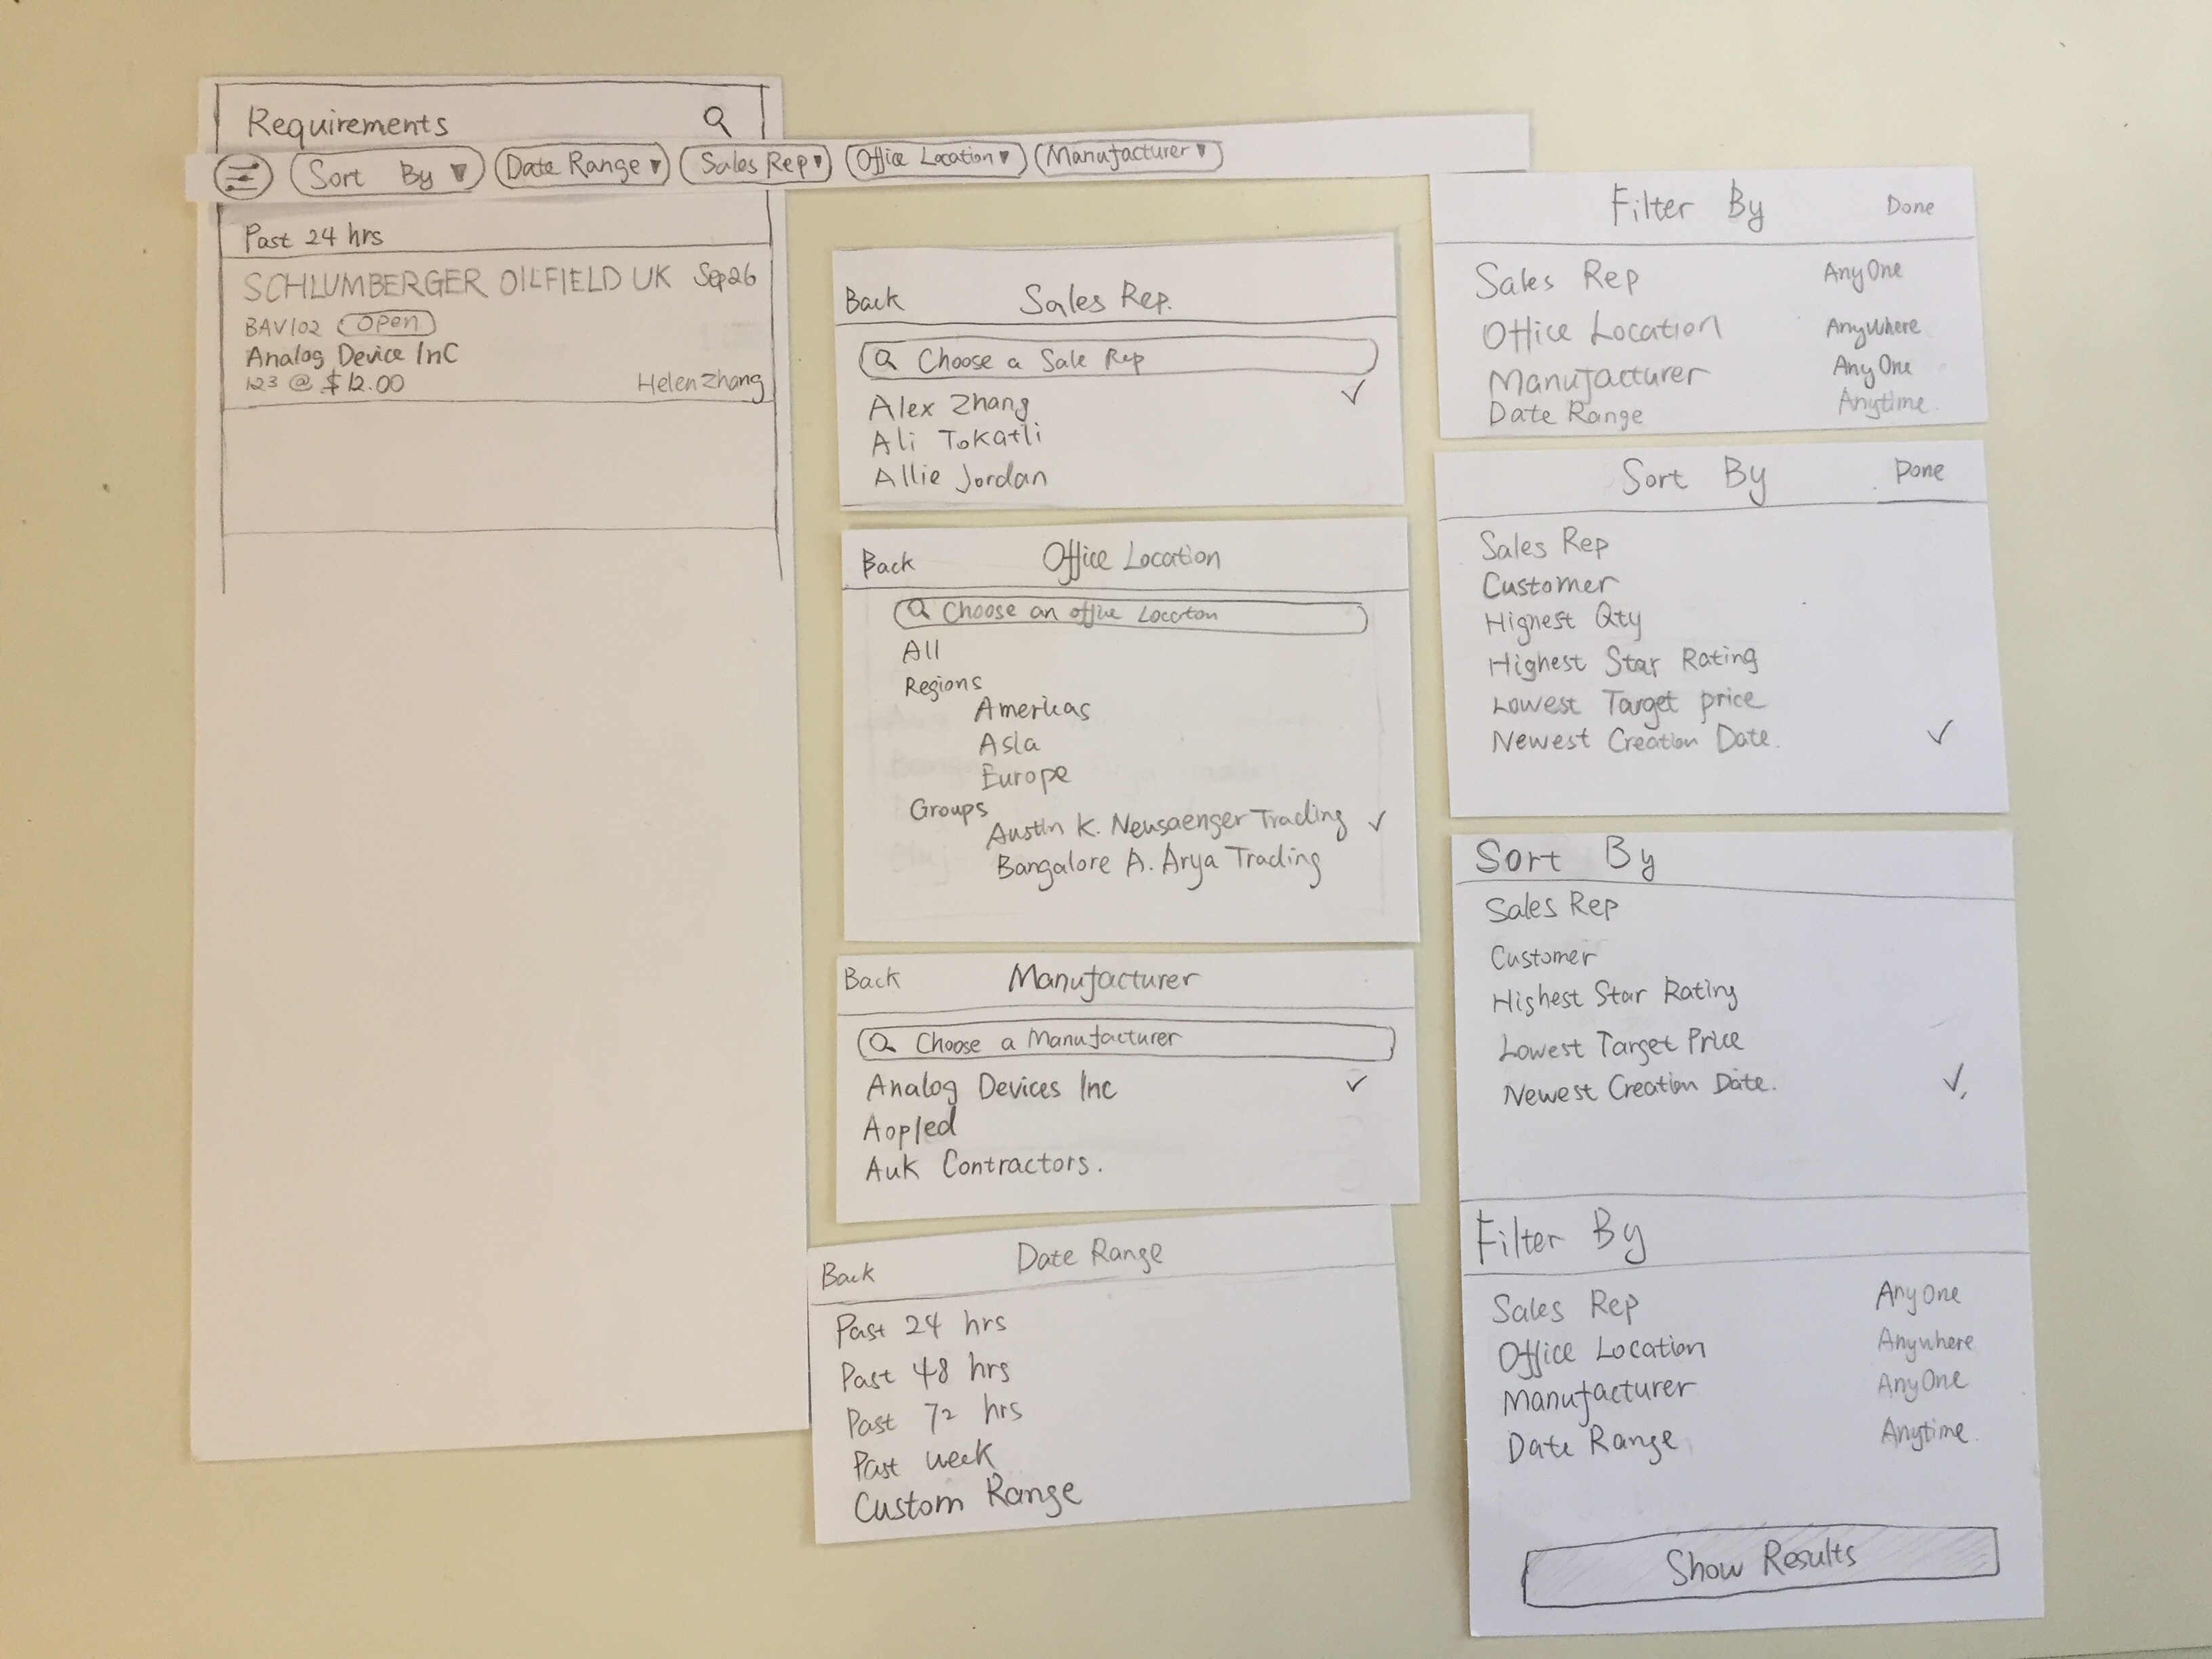 Requirements
Sort By ▼ Date Range ▼ Sales Rep ▼ Office Location ▼ Manufacturer ▼
Past 24 hrs
SCHLUMBERGER OILFIELD UK Sep26
BAV102 Open
Analog Device InC
123 @ $12.00 Helen Zhang
Back Sales Rep.
Choose a Sale Rep
Alex Zhang ✓
Ali Tokatli
Allie Jordan
Back Office Location
Choose an office Locaton
All
Regions
Americas
Asia
Europe
Groups
Austin K. Neusaenger Trading ✓
Bangalore A. Arya Trading
Back Manufacturer
Choose a Manufacturer
Analog Devices Inc ✓
Aopled
Auk Contractors.
Back Date Range
Past 24 hrs
Past 48 hrs
Past 72 hrs
Past week
Custom Range
Filter By Done
Sales Rep AnyOne
Office Location AnyWhere
Manufacturer AnyOne
Date Range Anytime.
Sort By Done
Sales Rep
Customer
Highest Qty
Highest Star Rating
Lowest Target price
Newest Creation Date. ✓
Sort By
Sales Rep
Customer
Highest Star Rating
Lowest Target Price
Newest Creation Date. ✓
Filter By
Sales Rep AnyOne
Office Location Anywhere
Manufacturer AnyOne
Date Range Anytime.
Show Results